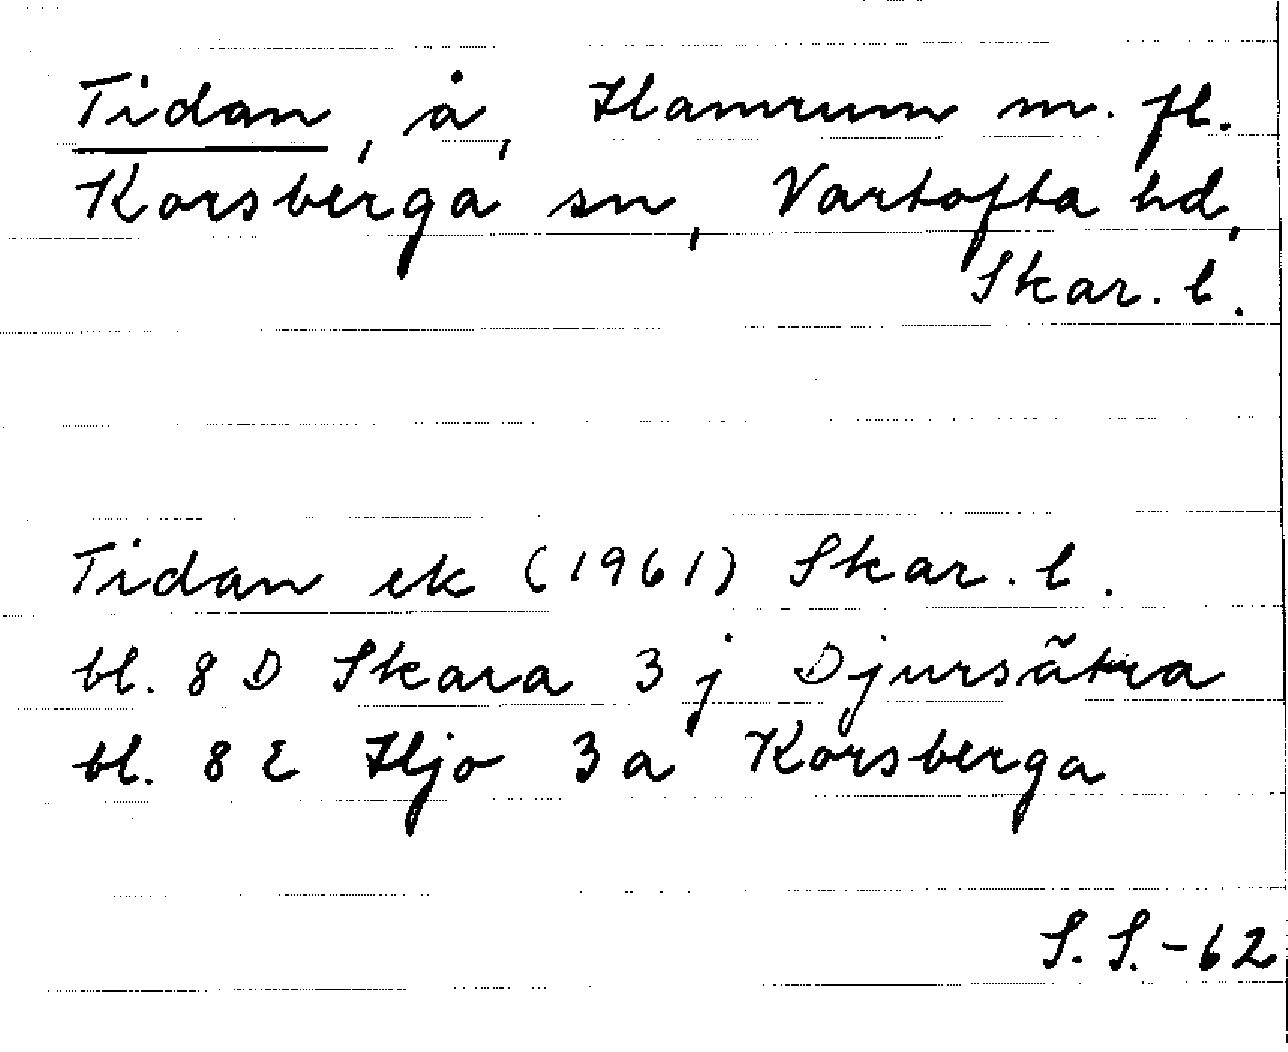 Tidan, å, Hamrum m. fl.
Korsberga sn, Vartofta hd,
Skar. l.
Tidan ek (1961) Skar. l.
bl. 8 D Skara 3 j Djursätra
bl. 8 E Hjo 3 a Korsberga
S. S. - 62